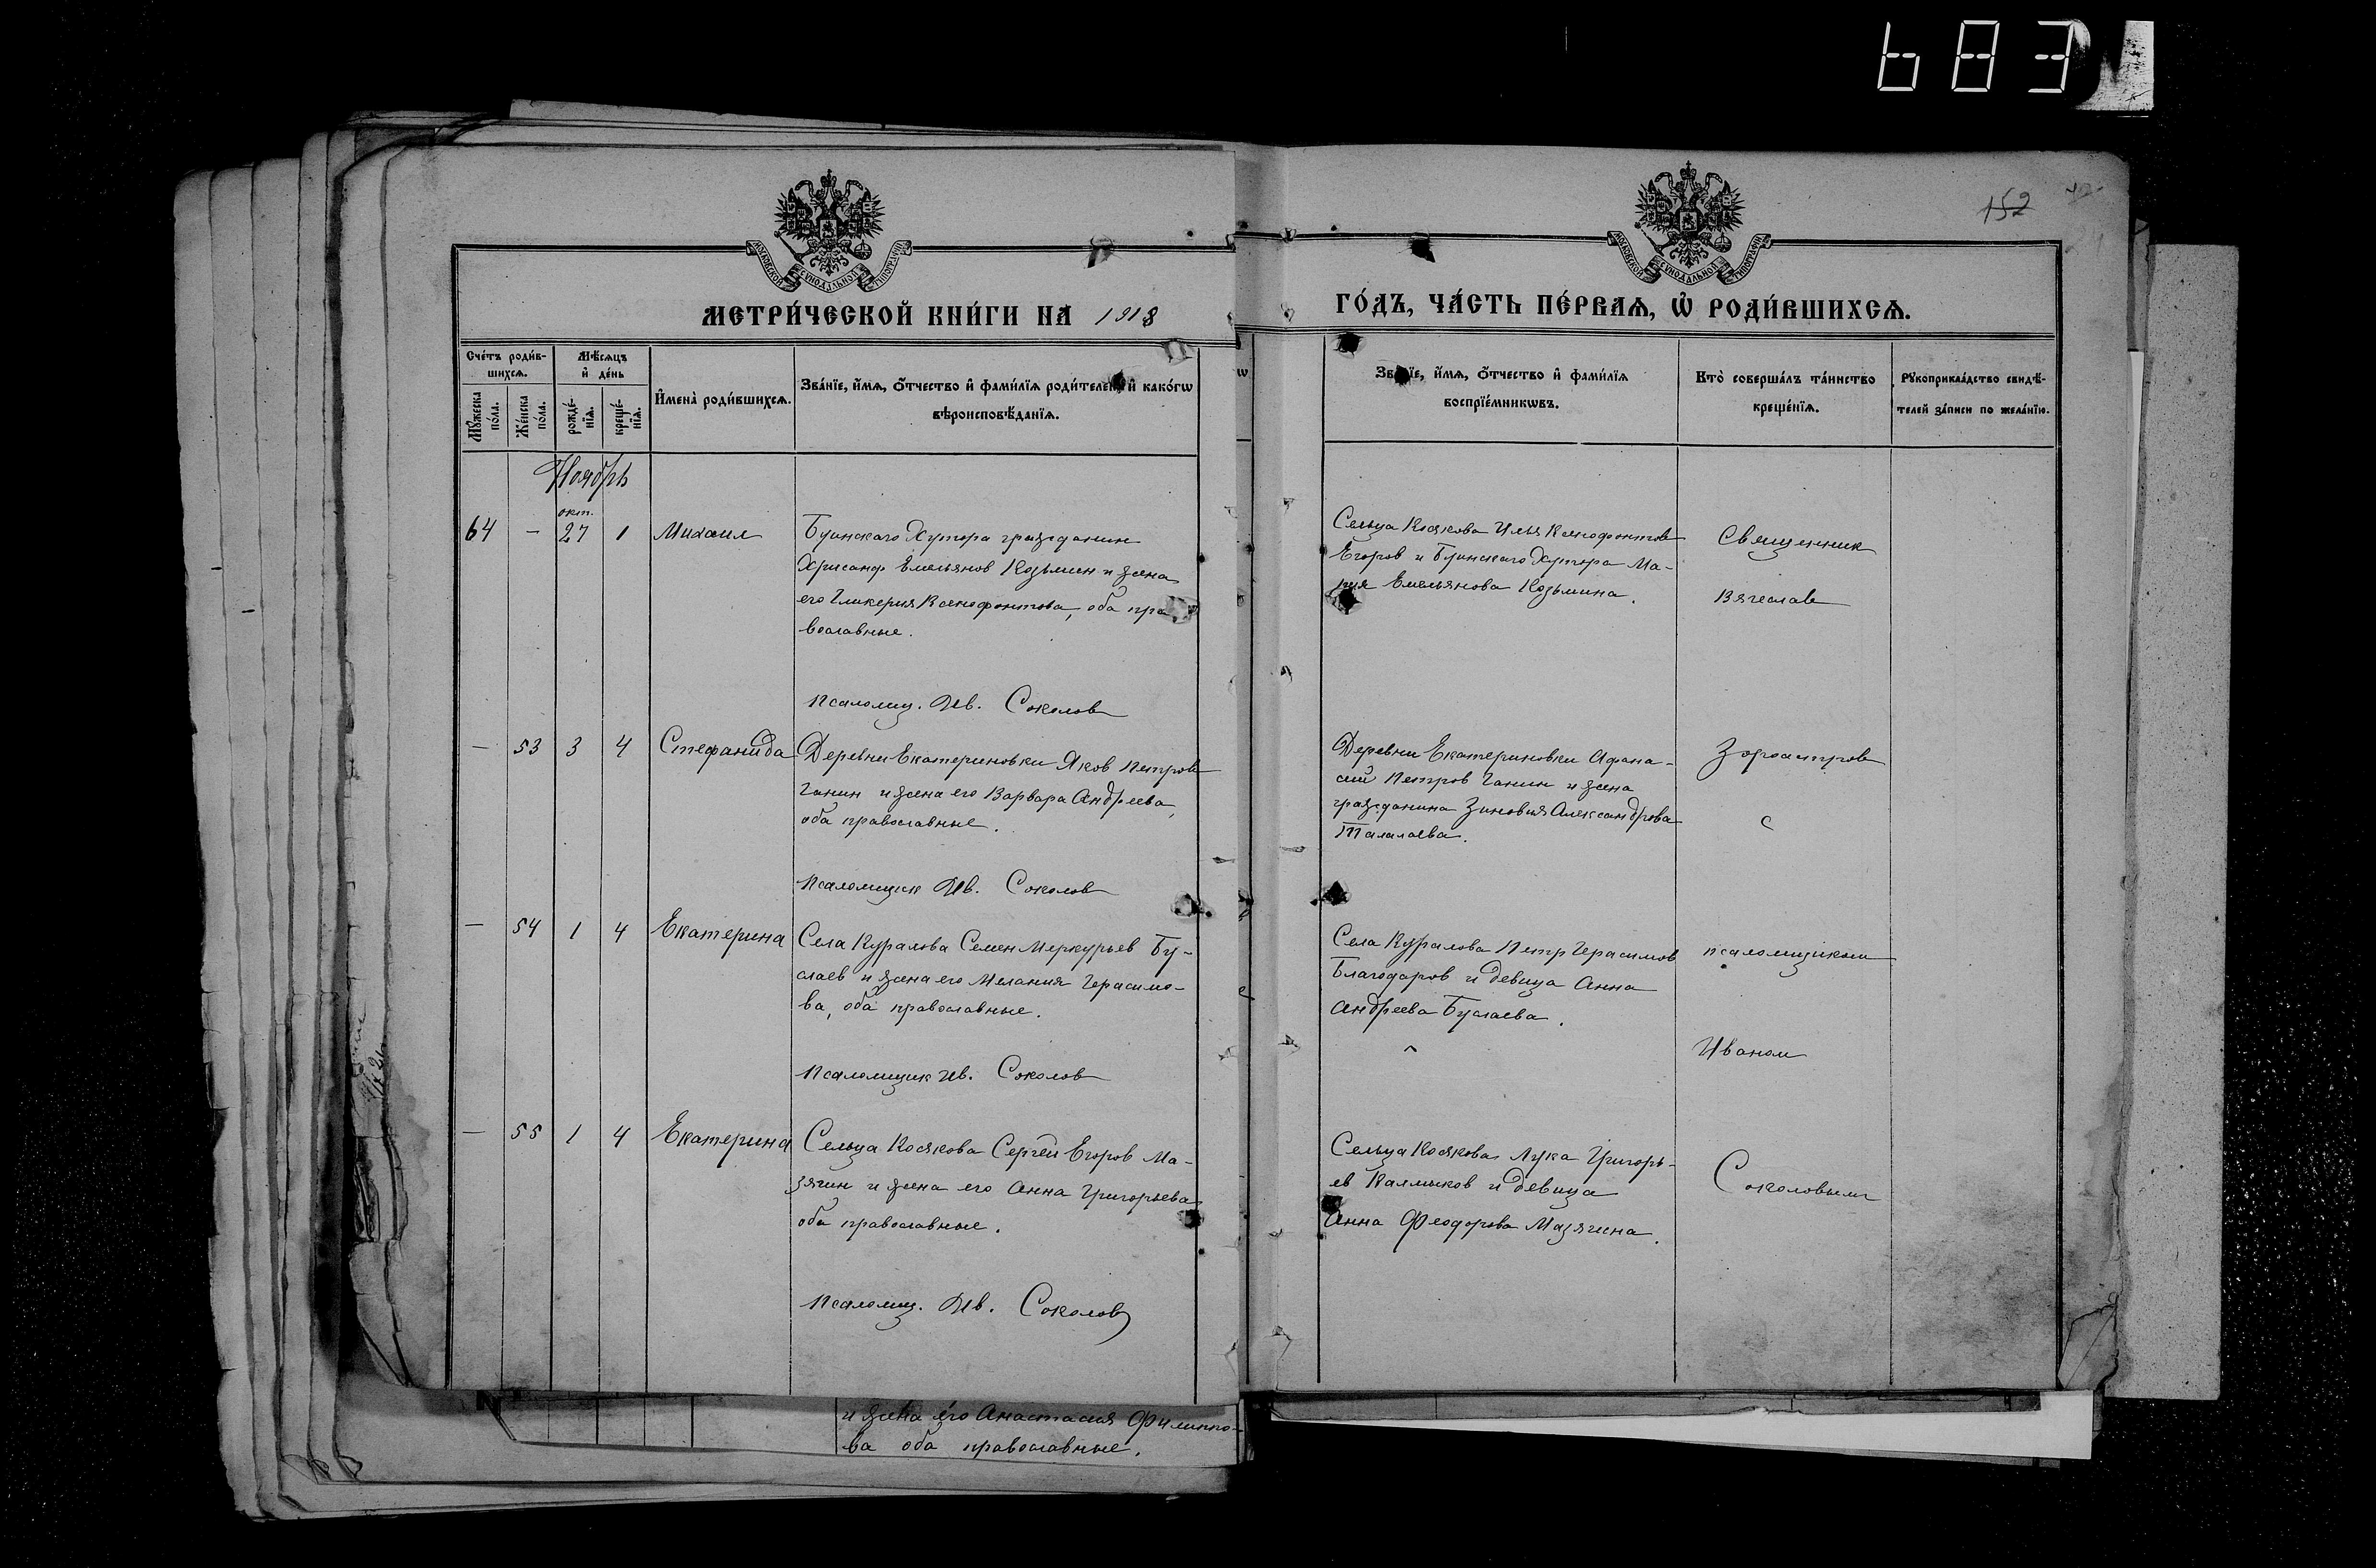 683
152
МОСКОВСКОЙ СѴНОДАЛЬНОЙ ТИПОГРАФІИ
МОСКОВСКОЙ СѴНОДАЛЬНОЙ ТИПОГРАФІИ
МЕТРИ́ЧЕСКОЙ КНИ́ГИ НА 1918
ГО́ДЪ, ЧА́СТЬ ПЕ́РВАѦ, Ѡ҆ РОДИ́ВШИХСѦ.
Сче́тъ роди́в-
шихсѧ.
Мꙋ́жеска по́ла.
Же́нска по́ла.
Мѣ́сѧцъ
и҆ де́нь
рожде́-
нїѧ.
креще́-
нїѧ.
И҆мена̀ роди́вшихсѧ.
Зва́нїе, и҆́мѧ, ѻ҆́тчество и҆ фами́лїѧ роди́телей и҆ како́гѡ
вѣроисповѣ́данїѧ.
Зва́нїе, и҆́мѧ, ѻ҆́тчество и҆ фами́лїѧ
воспрїе́мникѡвъ.
Кто̀ соверша́лъ та́инство
креще́нїѧ.
Рꙋкоприкла́дство свидѣ́-
телей за́писи по жела́нїю.
Ноябрь
окт.
64 – 27 1 Михаил
Буинскаго Хутора гражданин
Хрисанф Емельянов Козьмин и жена
его Гликерия Ксенофонтова, оба пра
вославные.
Псаломщ. Ив. Соколов
Сельца Косякова Илья Ксенофонтов
Егоров и Буинскаго Хутора Ма-
рия Емельянова Козьмина.
Священник
Вячеслав
— 53 3 4 Стефанида
Деревни Екатериновки Яков Петров
Ганин и жена его Варвара Андреева,
оба православные.
Псаломщик Ив. Соколов
Деревни Екатериновки Афана-
сий Петров Ганин и жена
гражданина Зиновия Александрова
Талалаева.
Зороастров
с
— 54 1 4 Екатерина
Села Куралова Семен Меркурьев Бу-
слаев и жена его Мелания Герасимо-
ва, оба православные.
Псаломщик Ив. Соколов
Села Куралова Петр Герасимов
Благодаров и девица Анна
Андреева Буслаева.
псаломщиком
Иваном
— 55 1 4 Екатерина
Сельца Косякова Сергей Егоров Ма-
зягин и жена его Анна Григорьева
оба православные.
Псаломщ. Ив. Соколов
Сельца Косякова Лука Григорь-
ев Калмыков и девица
Анна Феодорова Мазягина.
Соколовым
и жена его Анастасия Филиппо-
ва оба православные.